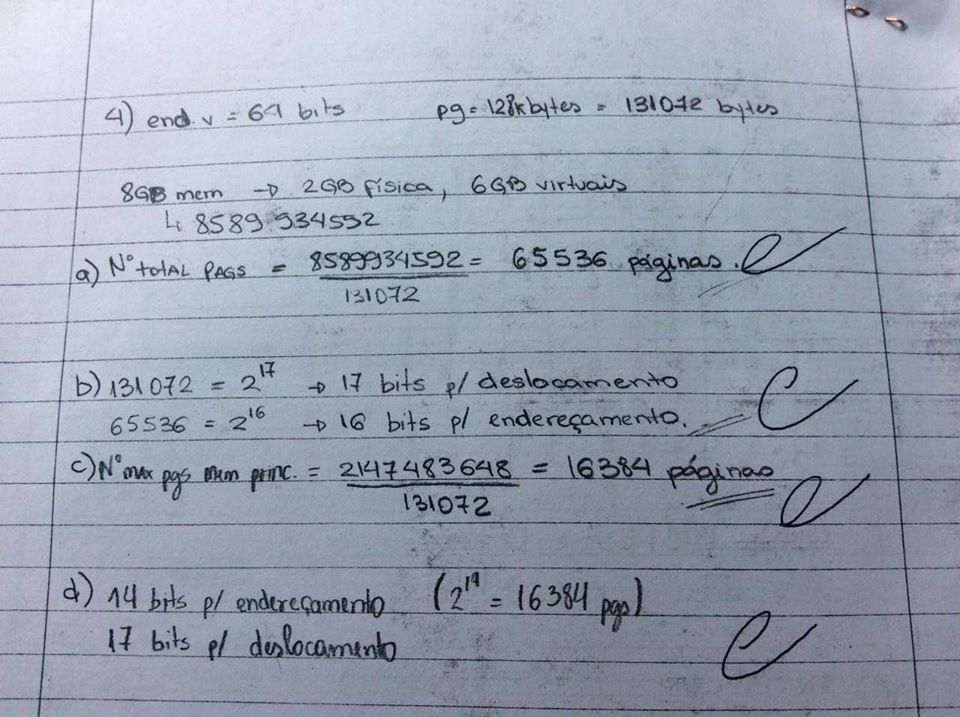 4) end. v = 64 bits pg = 128kbytes = 131072 bytes
8GB mem → 2GB física, 6GB virtuais
↳ 8589934592
a) Nº TOTAL PAGS = 8589934592 = 65536 páginas.
131072
b) 131072 = 2^17 → 17 bits p/ deslocamento
65536 = 2^16 → 16 bits p/ endereçamento.
c) Nº max pgs mem princ. = 2147483648 = 16384 páginas
131072
d) 14 bits p/ endereçamento (2^14 = 16384 pgs)
17 bits p/ deslocamento